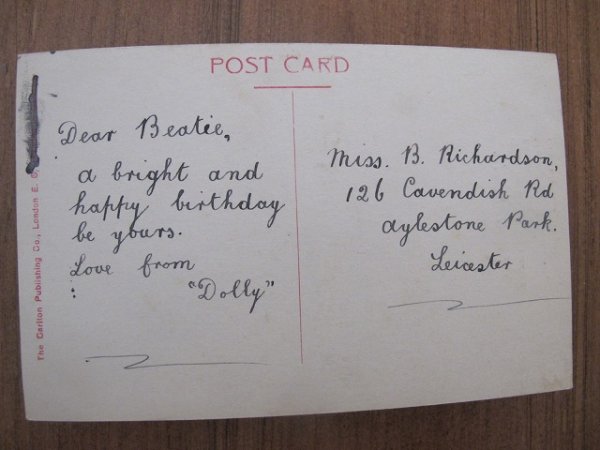 POST CARD
Dear Beatie,
a bright and
happy birthday
be yours.
Love from
"Dolly"
Miss. B. Richardson,
126 Cavendish Rd
Aylestone Park.
Leicester
The Carlton Publishing Co., London E. C.